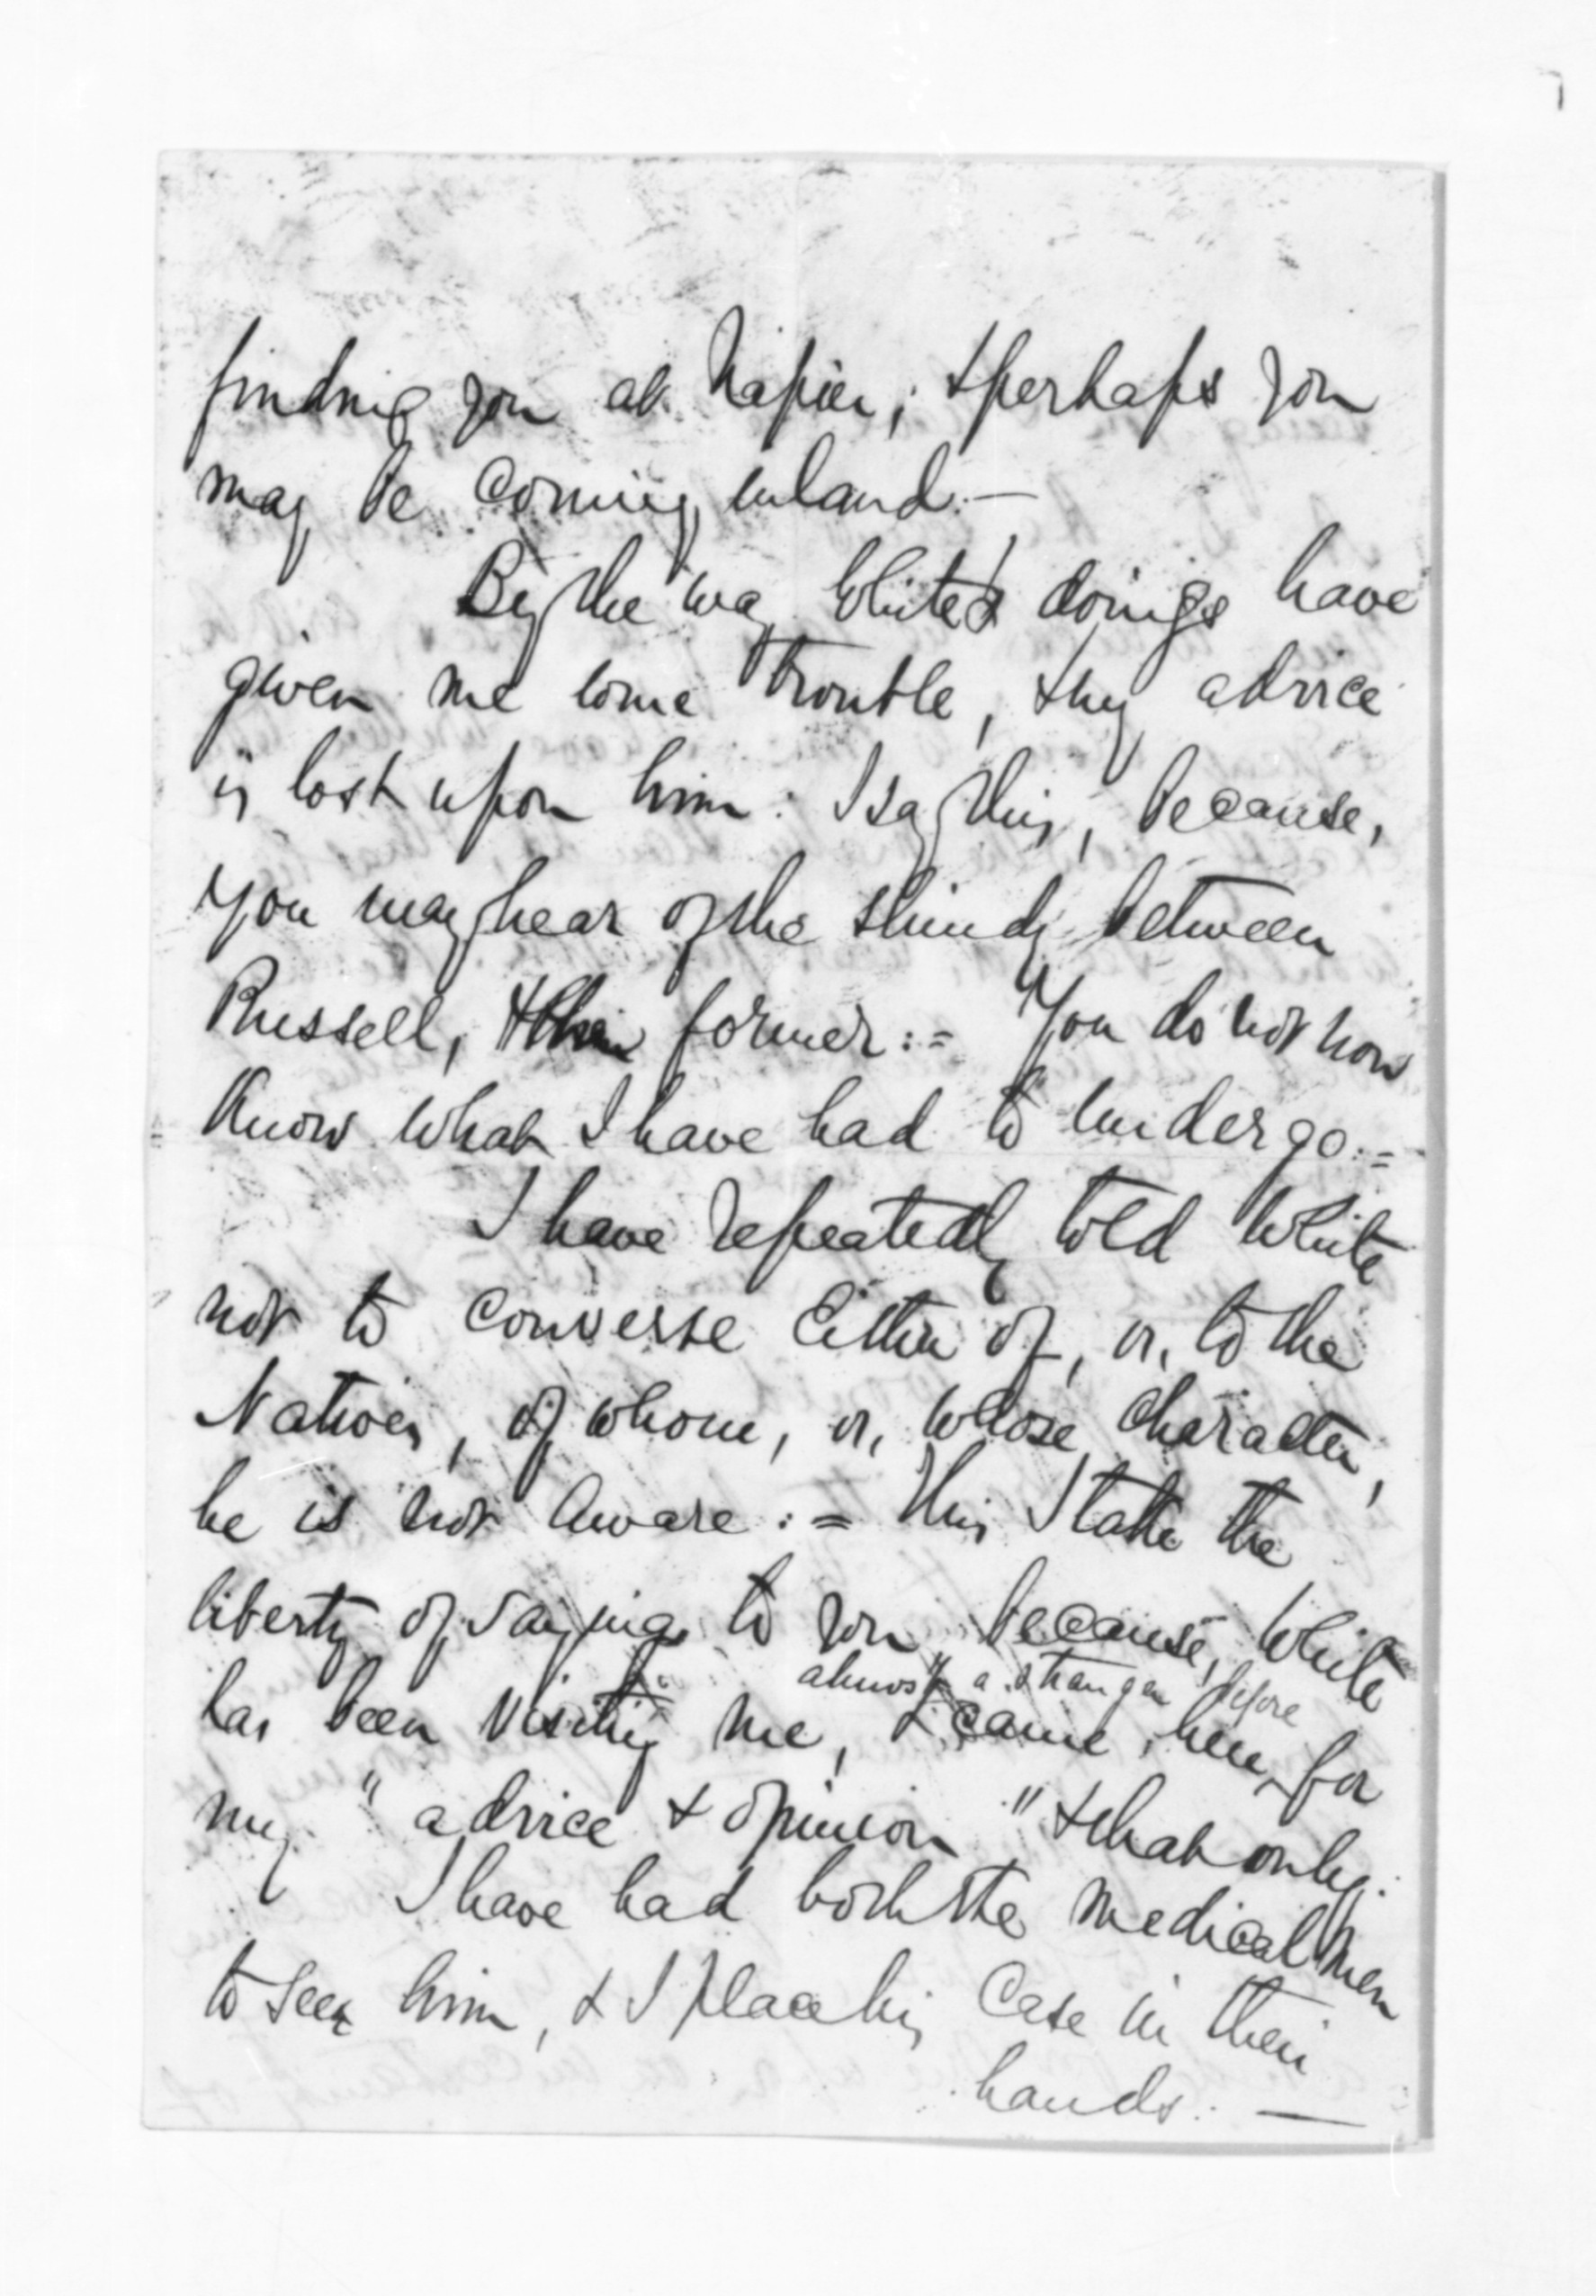 finding you at Napier; & perhaps you
may be coming inland. —
By the way White's doings have
given me some trouble, & my advice
is lost upon him: I say this, because,
you may hear of the shindy between
Russell, & the former := You do not how
know what I have had to undergo. =
I have repeatedly told White
not to converse either of, or, to the
Natives, of whom, or, whose character,
he is not aware := This I take the
liberty of saying to you, because, White
almost a stranger before
has been visiting me, & came here, for
my "advice & opinion" & that only.
I have had both the medical men
to see him, & I place his case in their
hands. —